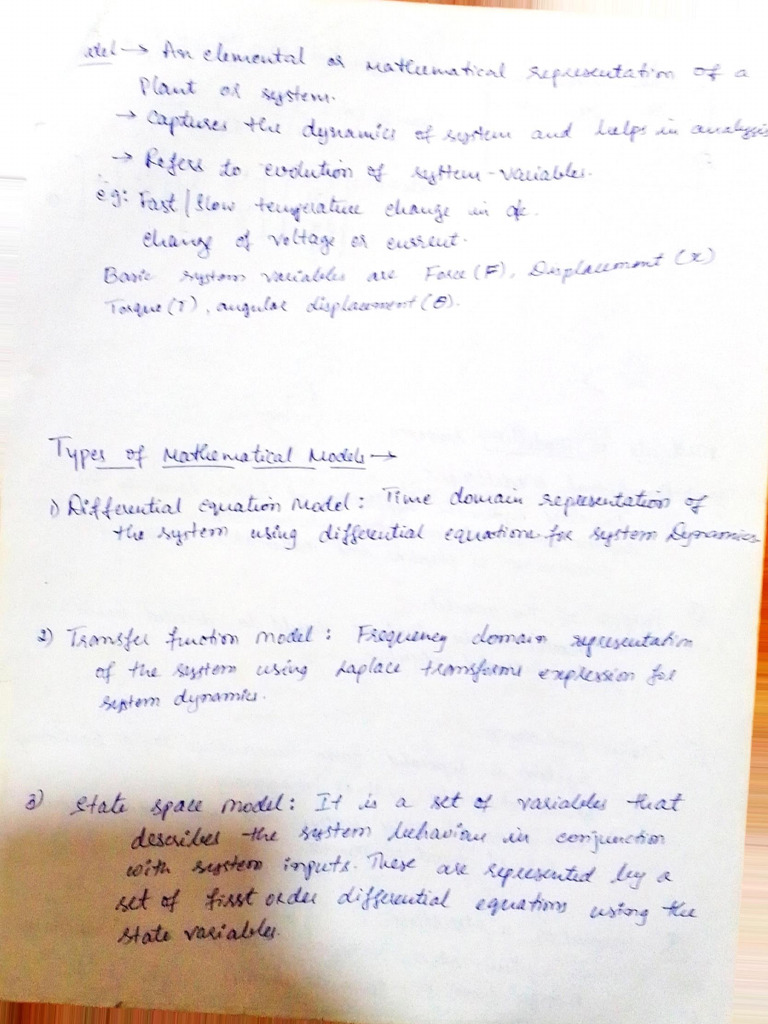 odel → An elemental or Mathematical representation of a
Plant or system.
→ Captures the dynamics of system and helps in analysis
→ Refers to evolution of system-variables.
eg: Fast/slow temperature change in
change of voltage or current.
Basic system variables are Force (F), Displacement (x)
Torque (T), angular displacement (θ).
Types of Mathematical Models →
1) Differential equation Model: Time domain representation of
the system using differential equations for system Dynamics
2) Transfer function Model: Frequency domain representation
of the system using Laplace transforms expression for
system dynamics.
3) State space Model: It is a set of variables that
describes the system behaviour in conjunction
with system inputs. These are represented by a
set of first order differential equations using the
state variables.